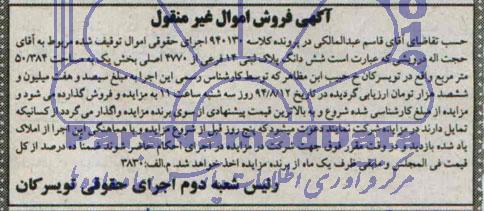 آگهی فروش اموال غیر منقول
حسب تقاضای آقای قاسم عبدالمالکی در پرونده کلاسه ۹۴۰۱۳۰ اجرای حقوقی اموال توقیف شده مربوط به آقای
حجت اله درویشی که عبارت است شش دانگ پلاک ثبتی ۱۴ فرعی از ۴۷۷۰ اصلی بخش یک به مساحت ۵۰/۳۸۴
متر مربع واقع در تویسرکان حسب ابن مظاهر که توسط کارشناس رسمی این اجرا به مبلغ سیصد و هفت میلیون و
ششصد هزار تومان ارزیابی گردیده در تاریخ ۹۴/۸/۱۲ روز سه شنبه ساعت ۱۰ به مزایده و فروش گذارده می شود و
مزایده از مبلغ کارشناسی شده شروع و به بالاترین قیمت پیشنهادی از سوی برنده مزایده واگذار می گردد از کسانیکه
تمایل دارند در مزایده شرکت نمایند دعوت میشود که پنج روز قبل از شروع مزایده با هماهنگی این اجرا از املاک
یاد شده بازدید و در وقت مقرر فوق جهت شرکت در مزایده در این اجرا حاضر شوند ضمنا ۱۰ درصد از کل
قیمت فی المجلس و مابقی ظرف یک ماه از برنده مزایده اخذ خواهد شد. م.الف: ۳۸۳
رئیس شعبه دوم اجرای حقوقی تویسرکان
مرکز فرآوری اطلاعات پارس نماد داده ها